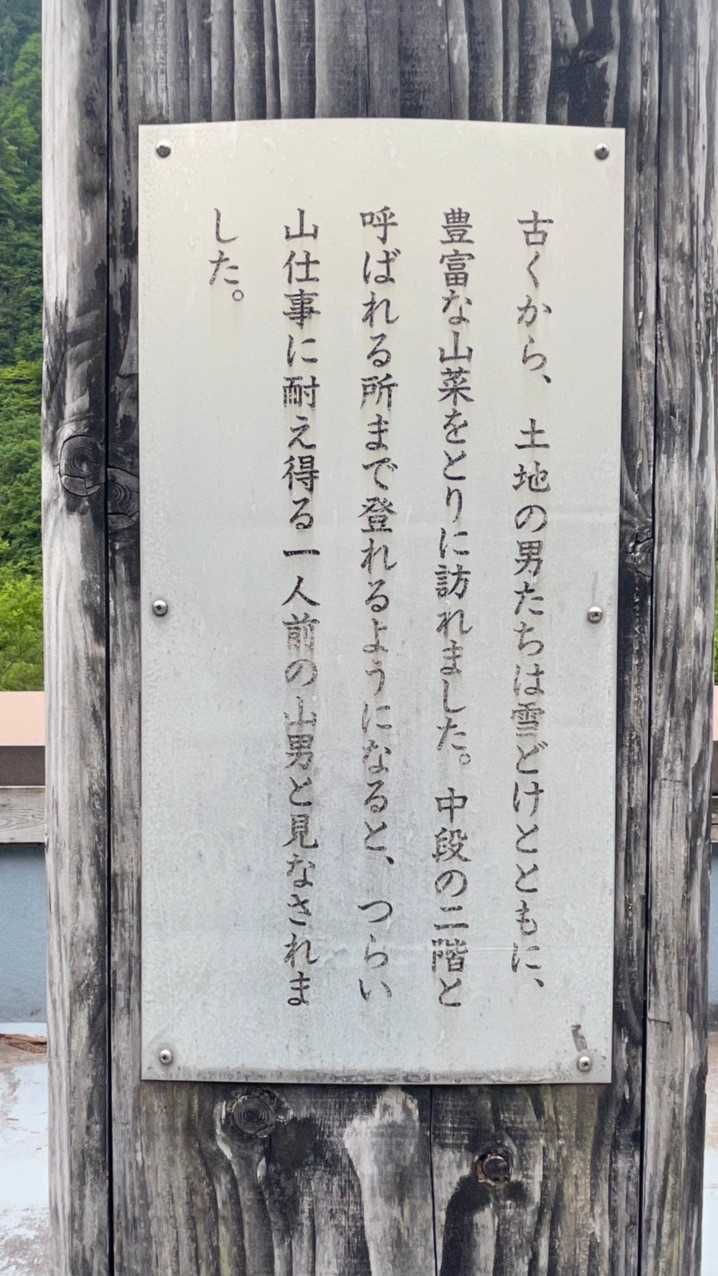 古くから、土地の男たちは雪どけとともに、
豊富な山菜をとりに訪れました。中段の二階と
呼ばれる所まで登れるようになると、つらい
山仕事に耐え得る一人前の山男と見なされま
した。